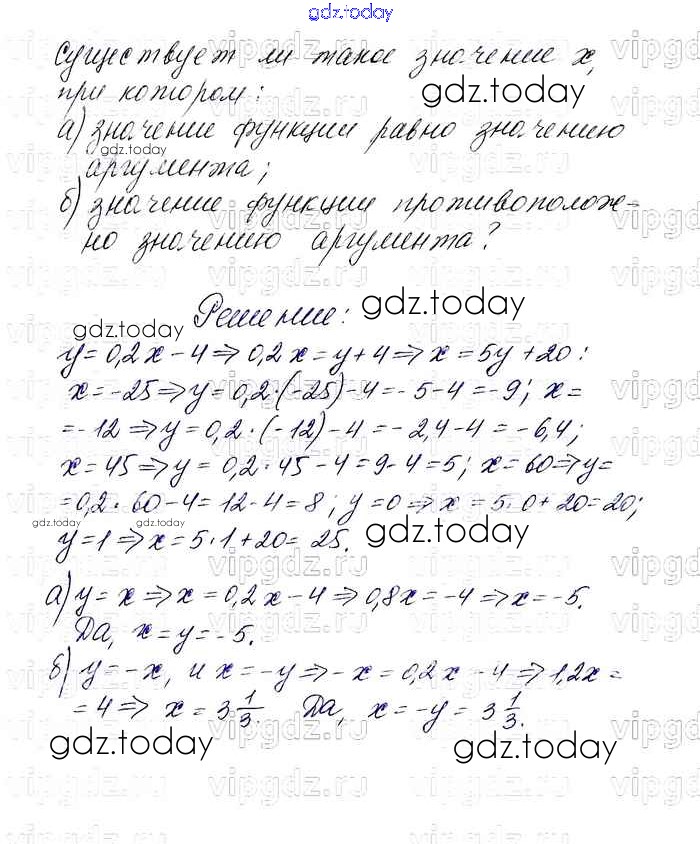 gdz.today
Существует ли такое значение x,
при котором:
gdz.today
а) значение функции равно значению
gdz.today
аргумента;
б) значение функции противополож-
но значению аргумента?
Решение:
gdz.today
gdz.today
y = 0,2x - 4 ⇒ 0,2x = y + 4 ⇒ x = 5y + 20:
x = -25 ⇒ y = 0,2·(-25) - 4 = -5 - 4 = -9; x =
= -12 ⇒ y = 0,2·(-12) - 4 = -2,4 - 4 = -6,4;
x = 45 ⇒ y = 0,2·45 - 4 = 9 - 4 = 5; x = 60 ⇒ y =
= 0,2·60 - 4 = 12 - 4 = 8; y = 0 ⇒ x = 5·0 + 20 = 20;
gdz.today
gdz.today
gdz.today
y = 1 ⇒ x = 5·1 + 20 = 25.
а) y = x ⇒ x = 0,2x - 4 ⇒ 0,8x = -4 ⇒ x = -5.
Да, x = y = -5.
б) y = -x, и x = -y ⇒ -x = 0,2x - 4 ⇒ 1,2x =
= 4 ⇒ x = 3 1/3. Да, x = -y = 3 1/3.
gdz.today
gdz.today
vipgdz.ru